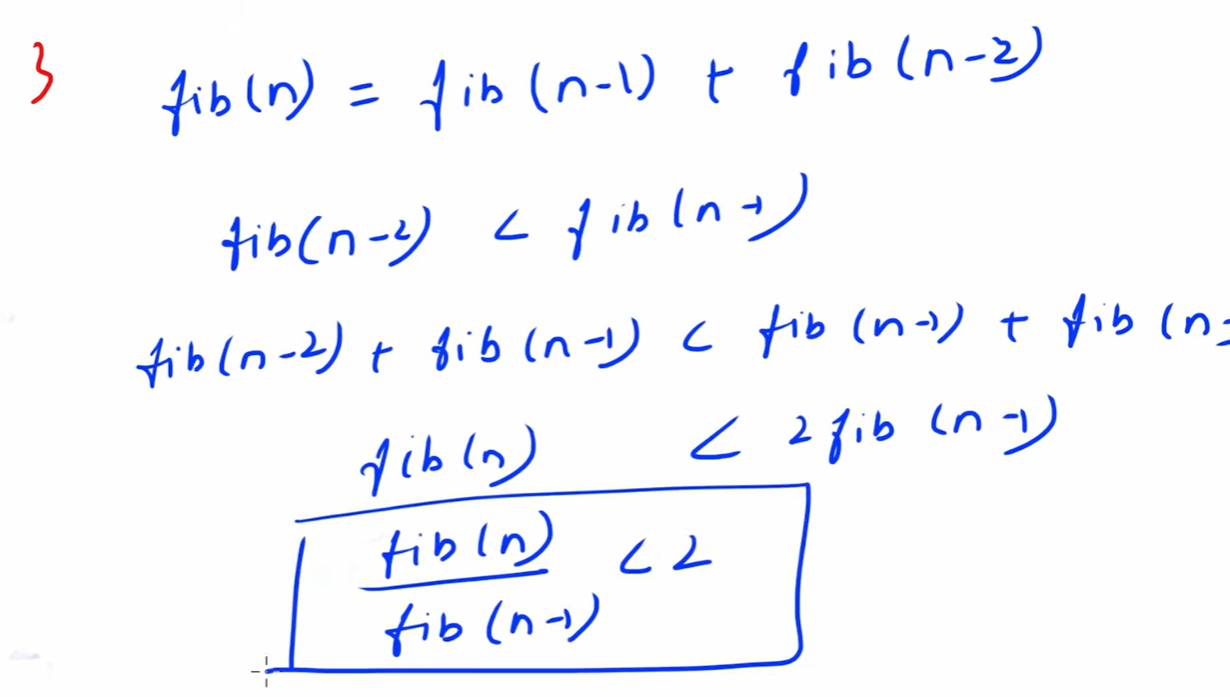 3 fib(n) = fib(n-1) + fib(n-2)
fib(n-2) < fib(n-1)
fib(n-2) + fib(n-1) < fib(n-1) + fib(n-
fib(n) < 2fib(n-1)
fib(n)
fib(n-1) < 2